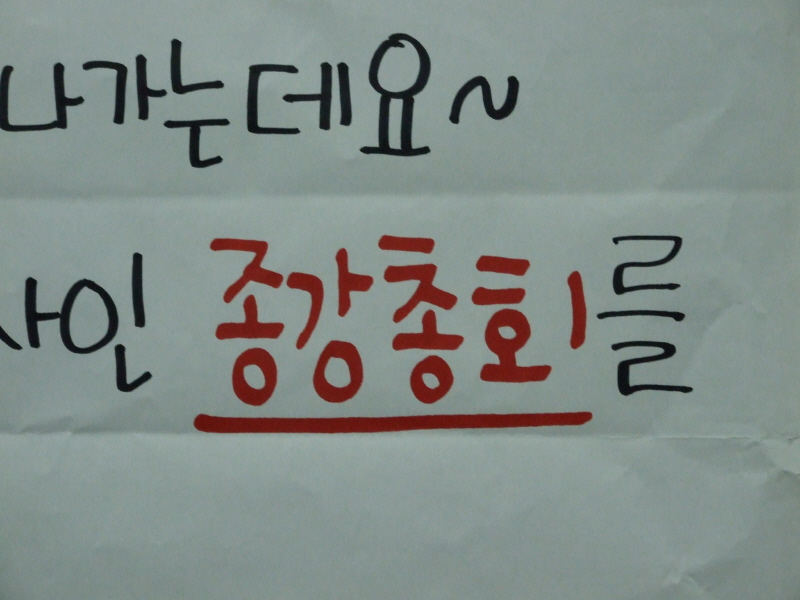 나가는데요~
사인 종강총회를